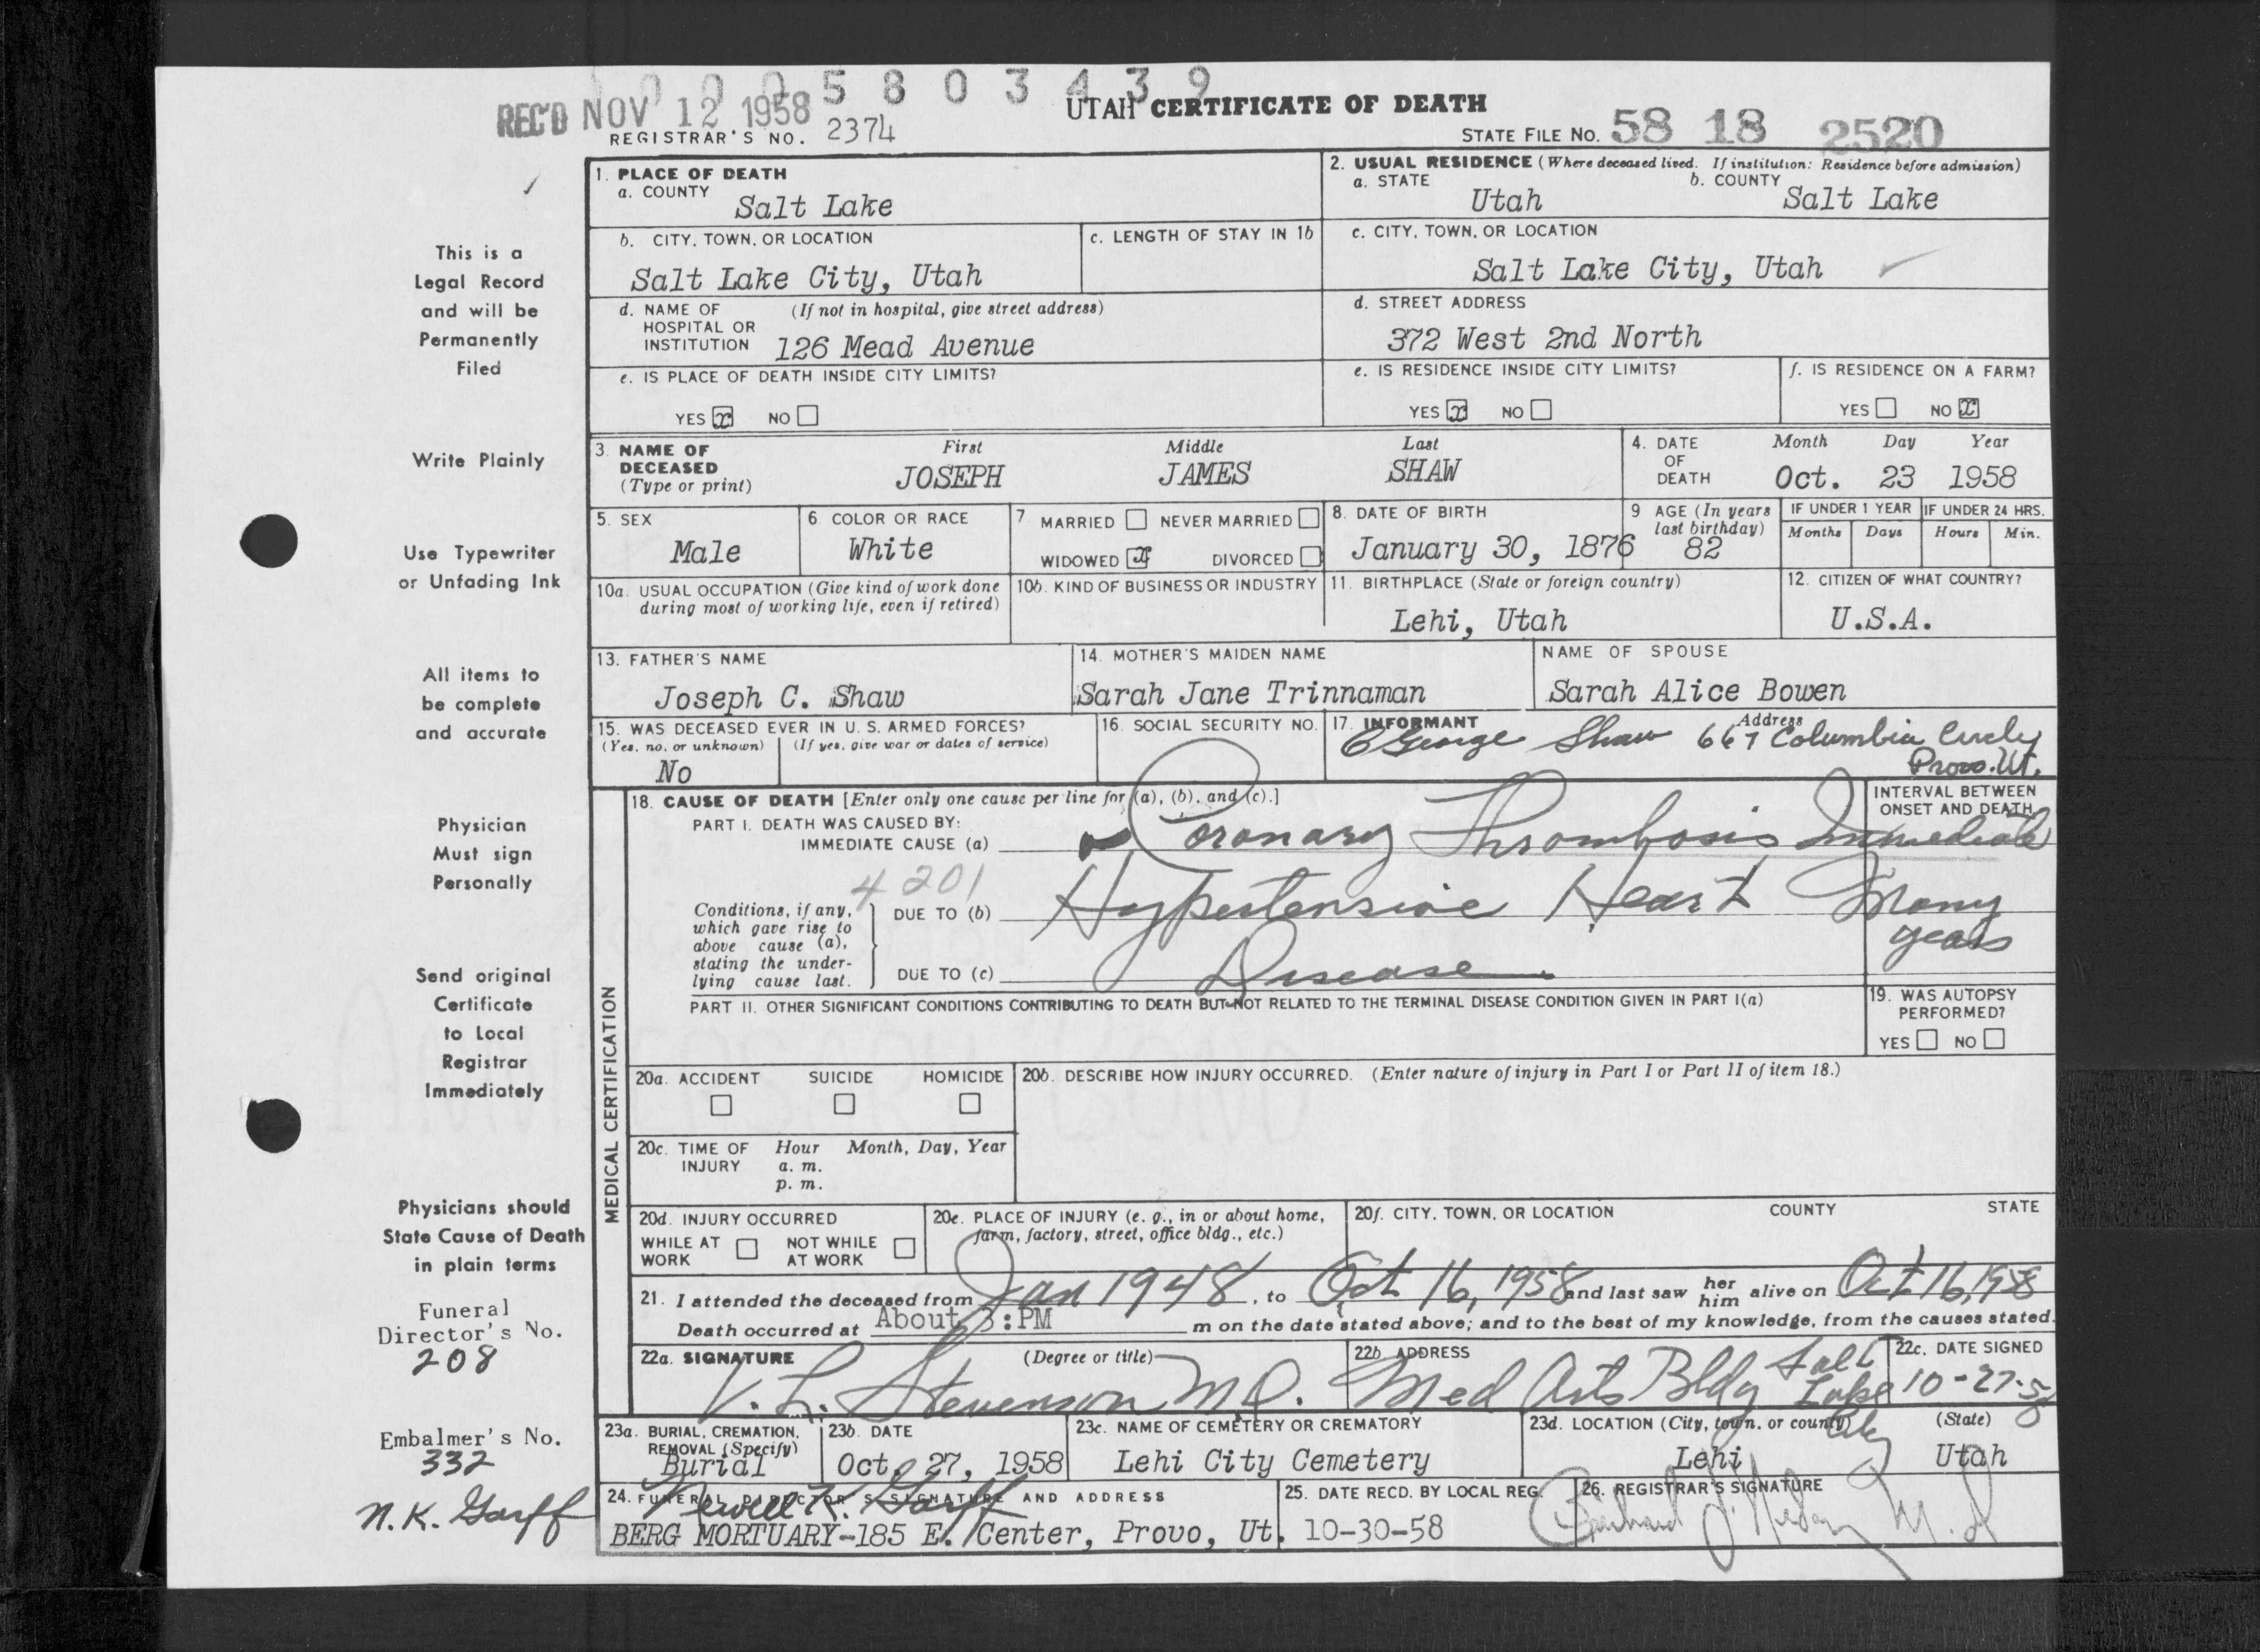 0 0 0 5 8 0 3 4 3 9
REC'D NOV 12 1958
UTAH CERTIFICATE OF DEATH
REGISTRAR'S NO. 2374
STATE FILE NO. 58 18 2520
This is a
Legal Record
and will be
Permanently
Filed
Write Plainly
Use Typewriter
or Unfading Ink
All items to
be complete
and accurate
Physician
Must sign
Personally
Send original
Certificate
to Local
Registrar
Immediately
Physicians should
State Cause of Death
in plain terms
Funeral
Director's No.
208
Embalmer's No.
332
N. K. Garff
1. PLACE OF DEATH
a. COUNTY
Salt Lake
2. USUAL RESIDENCE (Where deceased lived. If institution: Residence before admission)
a. STATE
Utah
b. COUNTY
Salt Lake
b. CITY, TOWN, OR LOCATION
Salt Lake City, Utah
c. LENGTH OF STAY IN 1b
c. CITY, TOWN, OR LOCATION
Salt Lake City, Utah
d. NAME OF (If not in hospital, give street address)
HOSPITAL OR
INSTITUTION 126 Mead Avenue
d. STREET ADDRESS
372 West 2nd North
e. IS PLACE OF DEATH INSIDE CITY LIMITS?
YES x NO
e. IS RESIDENCE INSIDE CITY LIMITS?
YES x NO
f. IS RESIDENCE ON A FARM?
YES NO x
3. NAME OF
DECEASED
(Type or print)
First Middle Last
JOSEPH JAMES SHAW
4. DATE
OF
DEATH
Month Day Year
Oct. 23 1958
5. SEX
Male
6 COLOR OR RACE
White
7 MARRIED NEVER MARRIED
WIDOWED x DIVORCED
8. DATE OF BIRTH
January 30, 1876
9 AGE (In years
last birthday)
82
IF UNDER 1 YEAR
Months Days
IF UNDER 24 HRS.
Hours Min.
10a. USUAL OCCUPATION (Give kind of work done
during most of working life, even if retired)
10b. KIND OF BUSINESS OR INDUSTRY
11. BIRTHPLACE (State or foreign country)
Lehi, Utah
12. CITIZEN OF WHAT COUNTRY?
U.S.A.
13. FATHER'S NAME
Joseph C. Shaw
14. MOTHER'S MAIDEN NAME
Sarah Jane Trinnaman
NAME OF SPOUSE
Sarah Alice Bowen
15. WAS DECEASED EVER IN U. S. ARMED FORCES?
(Yes, no, or unknown) (If yes, give war or dates of service)
No
16. SOCIAL SECURITY NO.
17. INFORMANT Address
George Shaw 667 Columbia Circle
Provo. Ut.
MEDICAL CERTIFICATION
18. CAUSE OF DEATH [Enter only one cause per line for (a), (b), and (c).]
PART I. DEATH WAS CAUSED BY:
IMMEDIATE CAUSE (a) Coronary Thrombosis
INTERVAL BETWEEN
ONSET AND DEATH
Immediate
4201
Conditions, if any,
which gave rise to
above cause (a),
stating the under-
lying cause last.
DUE TO (b) Hypertensive Heart
Many
years
DUE TO (c) Disease
PART II. OTHER SIGNIFICANT CONDITIONS CONTRIBUTING TO DEATH BUT NOT RELATED TO THE TERMINAL DISEASE CONDITION GIVEN IN PART I(a)
19. WAS AUTOPSY
PERFORMED?
YES NO
20a. ACCIDENT SUICIDE HOMICIDE
20b. DESCRIBE HOW INJURY OCCURRED. (Enter nature of injury in Part I or Part II of item 18.)
20c. TIME OF Hour Month, Day, Year
INJURY a. m.
p. m.
20d. INJURY OCCURRED
WHILE AT NOT WHILE
WORK AT WORK
20e. PLACE OF INJURY (e. g., in or about home,
farm, factory, street, office bldg., etc.)
20f. CITY, TOWN, OR LOCATION COUNTY STATE
21. I attended the deceased from Jan 1948, to Oct 16, 1958 and last saw her him alive on Oct 16, 1958
Death occurred at About 3:PM m on the date stated above; and to the best of my knowledge, from the causes stated.
22a. SIGNATURE (Degree or title)
V. L. Stevenson M.D.
22b. ADDRESS
Med Arts Bldg Salt
Lake
City
22c. DATE SIGNED
10-27-58
23a. BURIAL, CREMATION,
REMOVAL (Specify)
Burial
23b. DATE
Oct. 27, 1958
23c. NAME OF CEMETERY OR CREMATORY
Lehi City Cemetery
23d. LOCATION (City, town, or county) (State)
Lehi Utah
24. FUNERAL DIRECTOR'S SIGNATURE AND ADDRESS
Newell K. Garff
BERG MORTUARY-185 E. Center, Provo, Ut.
25. DATE RECD. BY LOCAL REG.
10-30-58
26. REGISTRAR'S SIGNATURE
M.D